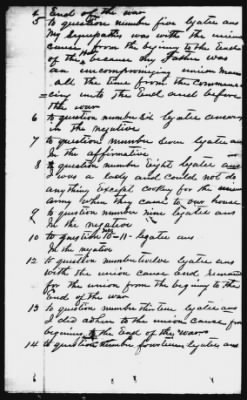 4 End of the war
5 to question number five lyatee ans
My sympathy was with the union
cause from the begining to the End
of the because my Father was
an uncompromising union Man
all the time from the Commence
=cing unto the End and before
the war
6 to question number six lyatee answers
in the negative
7 to question number seven lyatee ans
In the affirmative
8 to question number Eight lyatee ans
I was a lady and could not do
anything Except cooking for the union
army when they came to our house
9 to question number nine lyatee ans
In the negative
10 to question 10-11- lyatee ans
In the negative
12 to question number twelve lyatee ans
with the union cause and remained
for the union from the begining to the
End of the war
13 to question number thirteen lyatee ans
I did adhere to the union cause from
begining to the End of the war
14 to question number fourteen lyatee ans